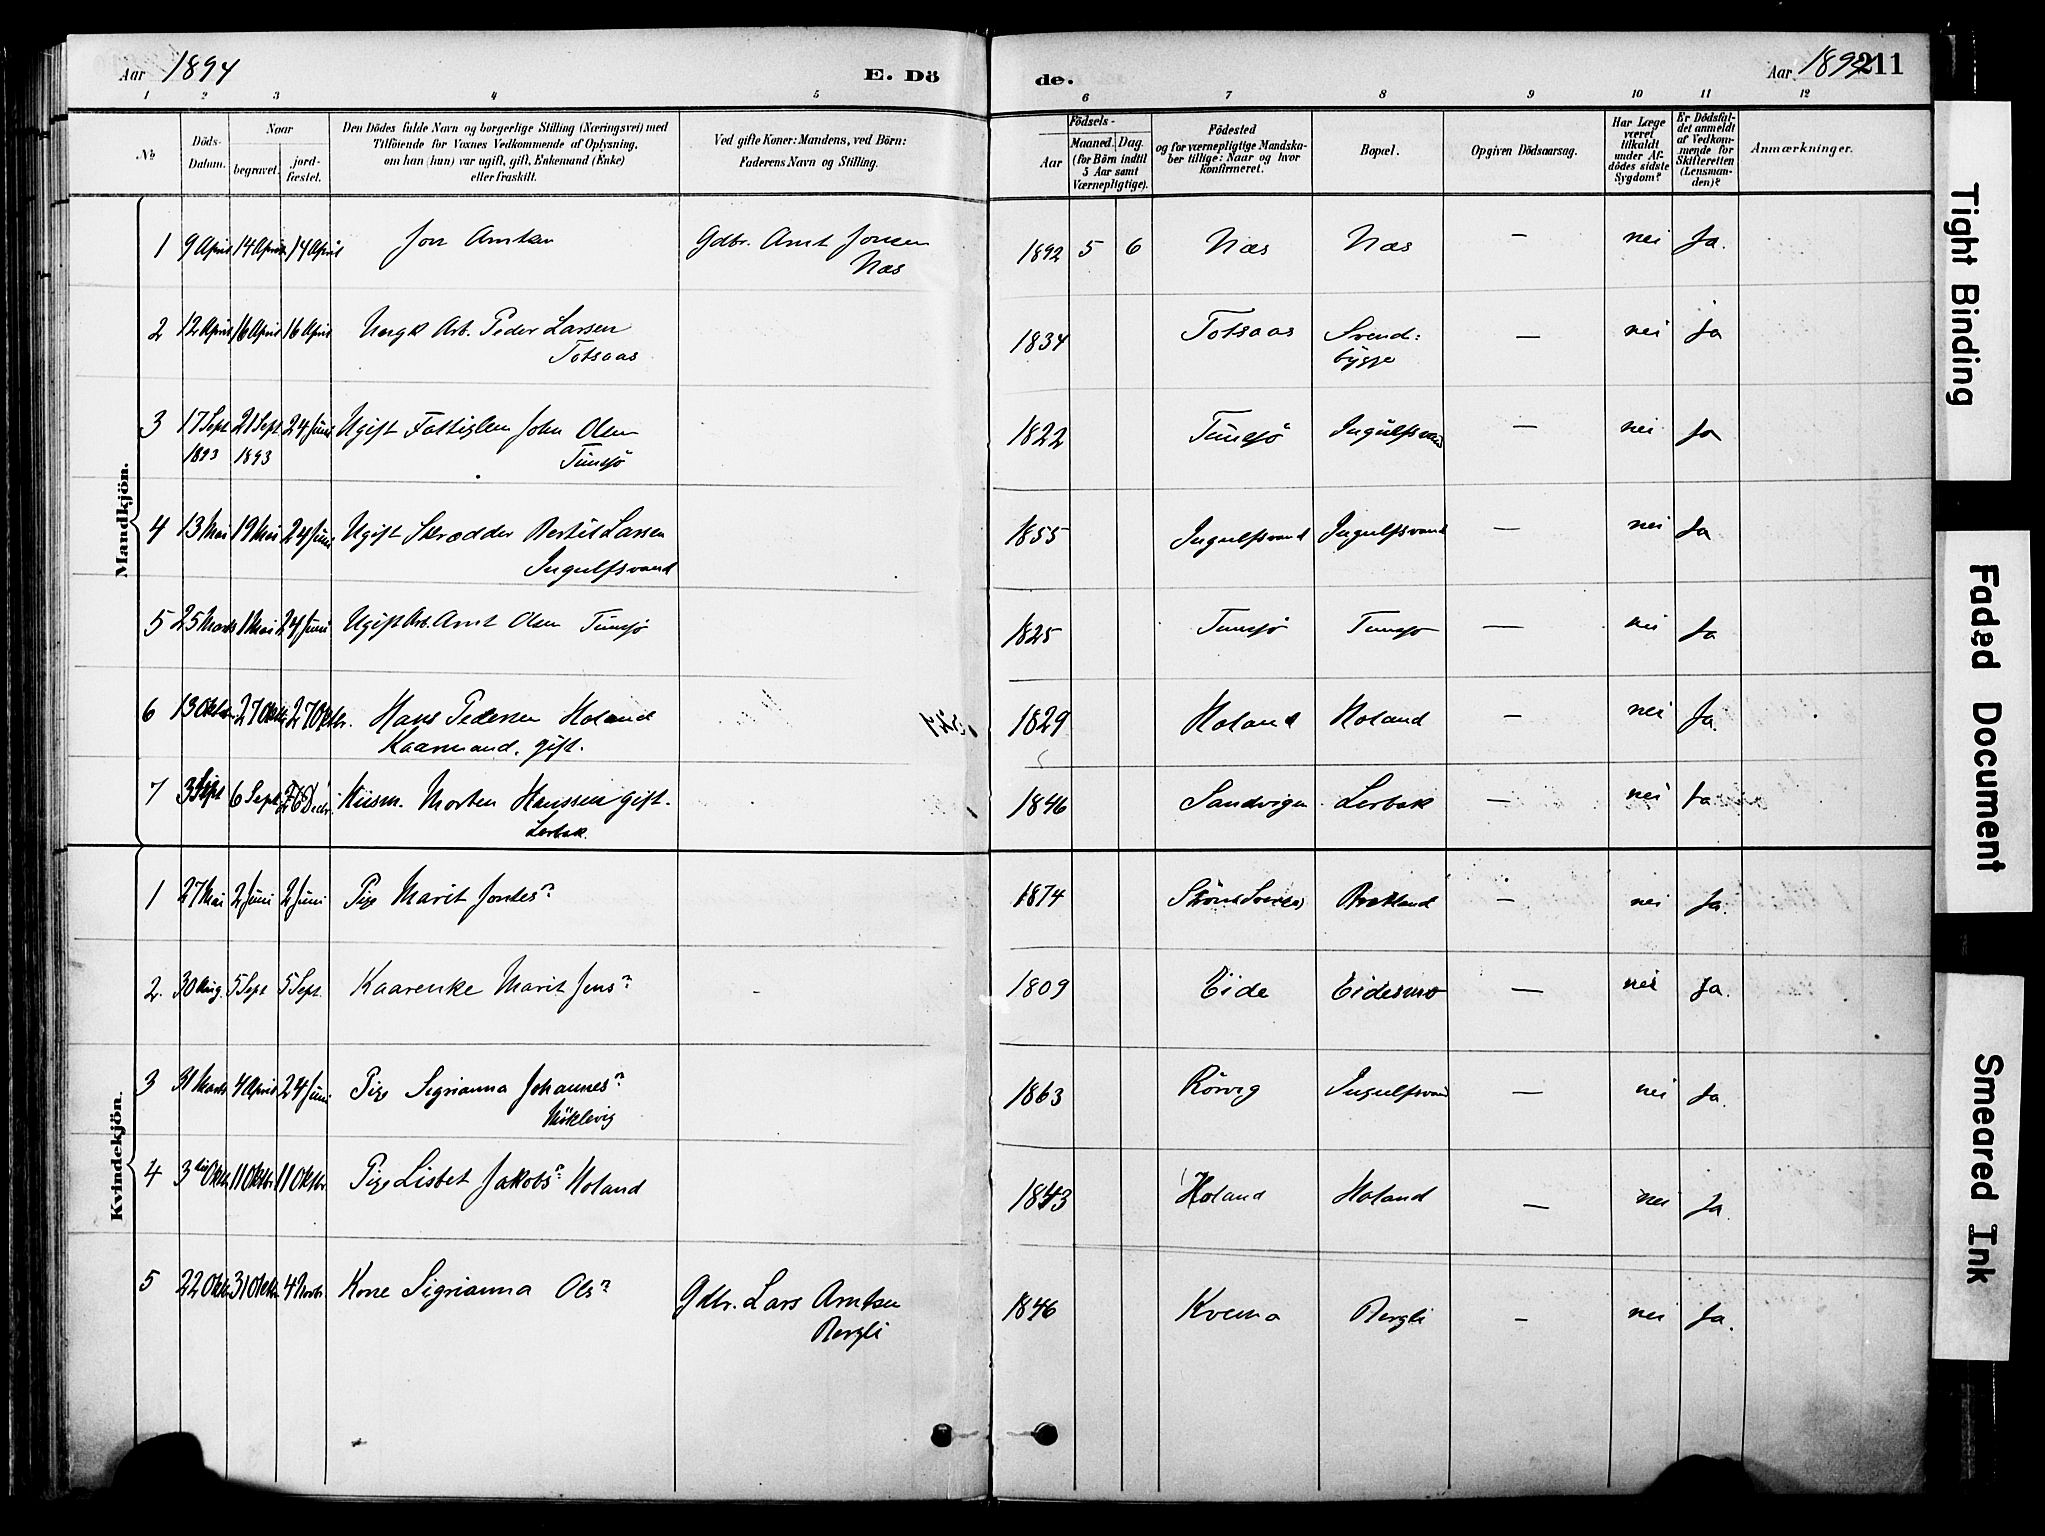 Aar 1894 E. Dö de. Aar 1894 211
1 2 3 4 5 6 7 8 9 10 11 12
No
Döds-Datum.
Naar
begravet.
jordfæstet.
Den Dödes fulde Navn og borgerlige Stilling (Næringsvei) med
Tilföiende for Voxnes Vedkommende af Oplysning,
om han (hun) var ugift, gift, Enkemand (Enke)
eller fraskilt.
Ved gifte Koner: Mandens, ved Börn:
Faderens Navn og Stilling.
Födsels-
Aar
Maaned. Dag.
(for Börn indtil
5 Aar samt
Værnepligtige).
Födested
og for værnepligtige Mandska-
ber tillige: Naar og hvor
konfirmeret.
Bopæl.
Opgiven Dödsaarsag.
Har Læge
været
tilkaldt
under Af-
dödes sidste
Sygdom?
Er Dödsfal-
det anmeldt
af Vedkom-
mende for
Skifteretten
(Lensman-
den)?
Anmærkninger.
Mandkjön.
1 9 April 14 April 14 April Jon Arntsen Gdbr. Arnt Jonsen 1892 5 6 Næs Næs — nei Ja.
Næs
2 12 April 16 April 16 April Ungk. Arb. Peder Larsen 1834 Totsaas Svend: — nei Ja
Totsaas bygge
3 17 Sept 21 Sept 24 Juni Ugift Fattiglem John Olsen 1822 Tunsjö Ingulfsvand — nei Ja
1893 1893 Tunsjö
4 13 Mai 19 Mai 24 Juni Ugift Skrædder Bertil Larsen 1855 Ingulfsvand Ingulfsvand — nei Ja
Ingulfsvand
5 25 Marts 1 Mai 24 Juni Ugift Arb. Arnt Olsen Tunsjö 1825 Tunsjö Tunsjö — nei Ja
6 13 Oktbr 27 Oktbr 27 Oktbr. Hans Pedersen Holand 1829 Holand Holand — nei Ja.
Kaarmand, gift.
7 3 Sept 6 Sept 26 Decbr. Husm. Morten Hanssen gift. 1846 Sandvigen Lerbak — nei Ja
Lerbak.
Kvindekjön.
1 27 Mai 2 Juni 2 Juni Pige Marit Jontesn: 1874 Brækland — nei Ja.
2. 30 Aug. 5 Sept 5 Sept. Kaarenke Marit Jensn: - 1809 Eide Eidesmo — nei Ja.
3 31 Marts 4 April 24 Juni Pige Sigrianna Johannesn: 1863 Rörvig Ingulfsvand — nei Ja.
Möklevig
4 3 Oktbr 11 Oktbr. 11 Oktbr. Pige Lisbet Jakobsn: Holand 1843 Holand Holand — nei Ja
5 22 Oktbr 31 Oktbr 4 Novbr. Kone Sigrianna Olsn: Gdbr. Lars Arntsen 1846 Kverna Bergli — nei Ja.
Bergli
Tight Binding
Faded Document
Smeared Ink